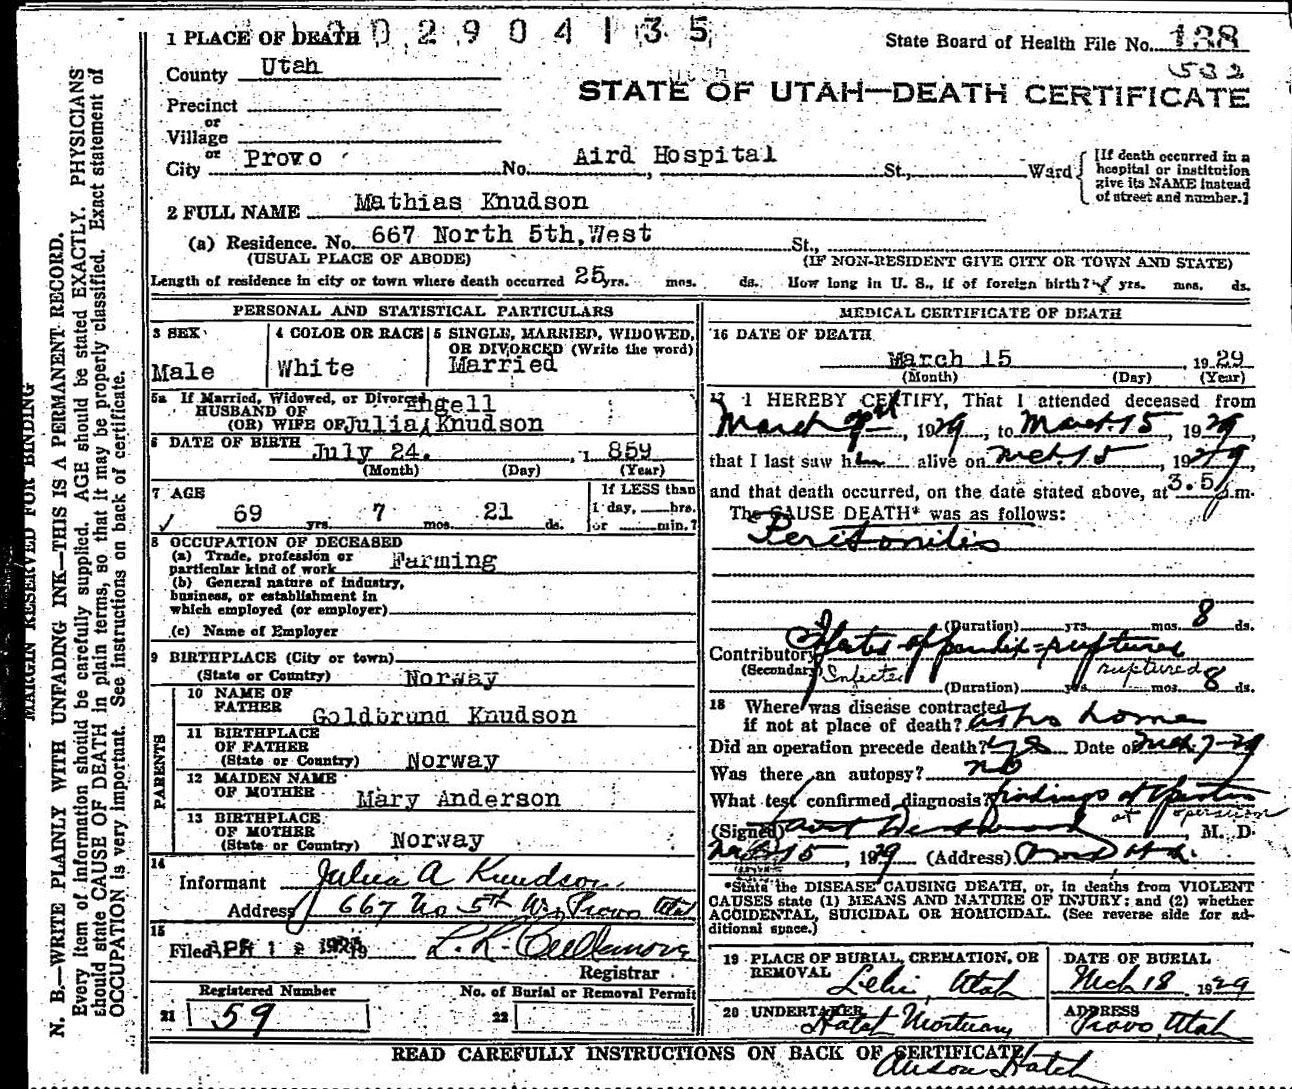 MARGIN RESERVED FOR BINDING
N. B.—WRITE PLAINLY WITH UNFADING INK—THIS IS A PERMANENT RECORD.
Every item of information should be carefully supplied. AGE should be stated EXACTLY. PHYSICIANS
should state CAUSE OF DEATH in plain terms, so that it may be properly classified. Exact statement of
OCCUPATION is very important. See instructions on back of certificate.
1 PLACE OF DEATH 02904135
State Board of Health File No. 138
532
County Utah
STATE OF UTAH—DEATH CERTIFICATE
Precinct
or
Village
or
City Provo No. Aird Hospital St., Ward
[If death occurred in a
hospital or institution
give its NAME instead
of street and number.]
2 FULL NAME Mathias Knudson
(a) Residence. No. 667 North 5th, West St.,
(USUAL PLACE OF ABODE) (IF NON-RESIDENT GIVE CITY OR TOWN AND STATE)
Length of residence in city or town where death occurred 25 yrs. mos. ds. How long in U. S., if of foreign birth? yrs. mos. ds.
PERSONAL AND STATISTICAL PARTICULARS
3 SEX
Male
4 COLOR OR RACE
White
5 SINGLE, MARRIED, WIDOWED,
OR DIVORCED (Write the word)
Married
5a If Married, Widowed, or Divorced
HUSBAND OF Angell
(OR) WIFE OF Julia Knudson
6 DATE OF BIRTH July 24. 1 859
(Month) (Day) (Year)
7 AGE
69 yrs. 7 mos. 21 ds.
If LESS than
1 day, hrs.
or min.?
8 OCCUPATION OF DECEASED
(a) Trade, profession or
particular kind of work Farming
(b) General nature of industry,
business, or establishment in
which employed (or employer)
(c) Name of Employer
9 BIRTHPLACE (City or town)
(State or Country) Norway
PARENTS
10 NAME OF
FATHER Goldbrund Knudson
11 BIRTHPLACE
OF FATHER
(State or Country) Norway
12 MAIDEN NAME
OF MOTHER Mary Anderson
13 BIRTHPLACE
OF MOTHER
(State or Country) Norway
14
Informant Julia A Knudson
Address 667 No 5th W., Provo Utah
15
Filed APR 1 19
L. K.
Registrar
Registered Number
21 59
No. of Burial or Removal Permit
22
MEDICAL CERTIFICATE OF DEATH
16 DATE OF DEATH
March 15 , 1929
(Month) (Day) (Year)
17 I HEREBY CERTIFY, That I attended deceased from
March , 1929, to March 15, 1929,
that I last saw him alive on Mch. 15, 1929,
and that death occurred, on the date stated above, at 3.5 p.m.
The CAUSE DEATH* was as follows:
Peritonitis
(Duration) yrs. mos. 8 ds.
Contributory appendix ruptured
(Secondary) Infected ruptured
(Duration) yrs. mos. 8 ds.
18 Where was disease contracted
if not at place of death? at his home
Did an operation precede death? yes Date of Mch. 7-29
Was there an autopsy? no
What test confirmed diagnosis? findings at operation
at operation
(Signed) , M. D.
15, 1929 (Address) Provo Utah
*State the DISEASE CAUSING DEATH, or, in deaths from VIOLENT
CAUSES state (1) MEANS AND NATURE OF INJURY; and (2) whether
ACCIDENTAL, SUICIDAL OR HOMICIDAL. (See reverse side for ad-
ditional space.)
19 PLACE OF BURIAL, CREMATION, OR
REMOVAL
Lehi, Utah
DATE OF BURIAL
Mch 18 1929
20 UNDERTAKER
Hatch Mortuary
ADDRESS
Provo, Utah
READ CAREFULLY INSTRUCTIONS ON BACK OF CERTIFICATE
Anson Hatch